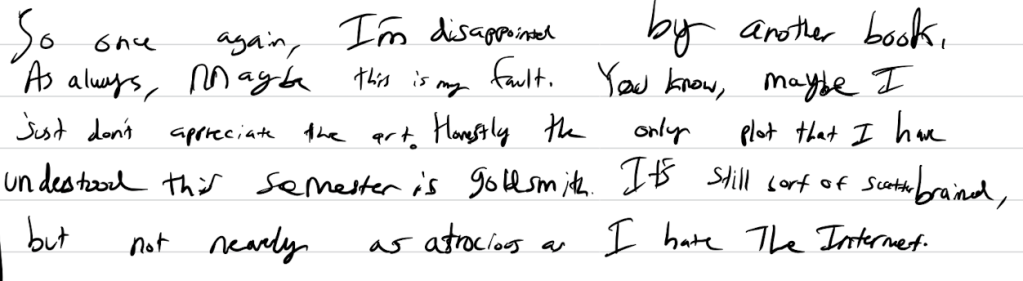 So once again, I'm disappointed by another book.
As always, Maybe this is my fault. You know, maybe I
just don't appreciate the art. Honestly the only plot that I have
understood this semester is goldsmith. It's still sort of scatterbrained,
but not nearly as atrocious as I hate The Internet.